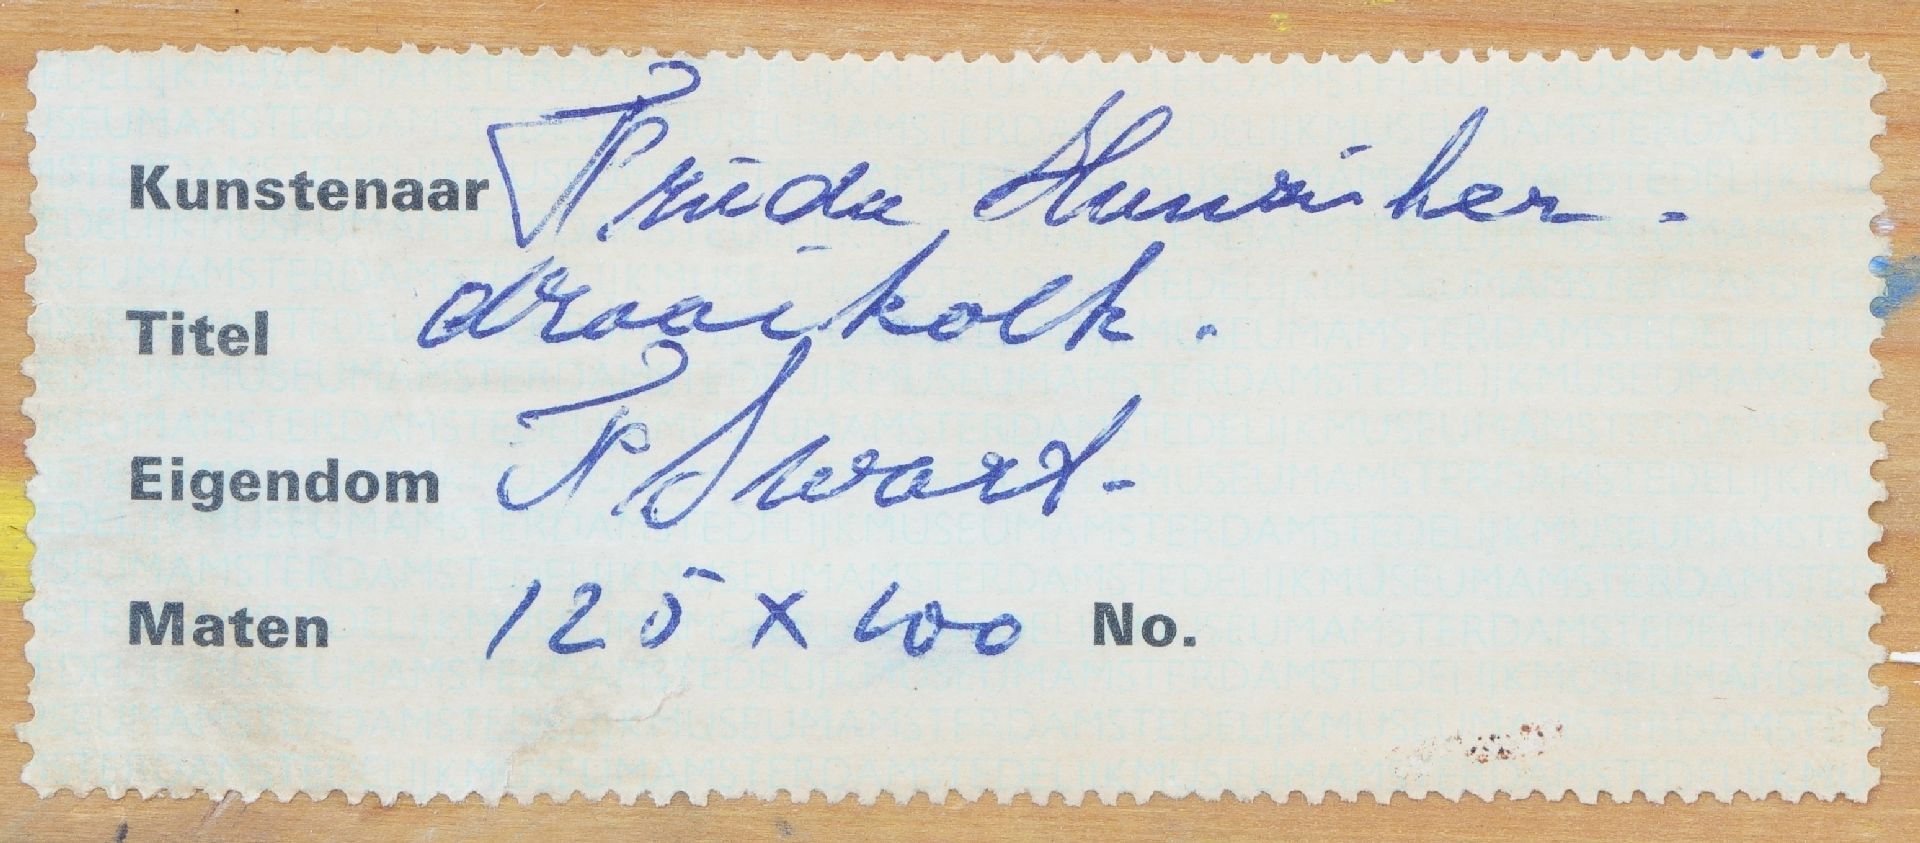 Kunstenaar Frida Hunziker.
Titel draaikolk.
Eigendom P Swart-
Maten 125 x 100 No.